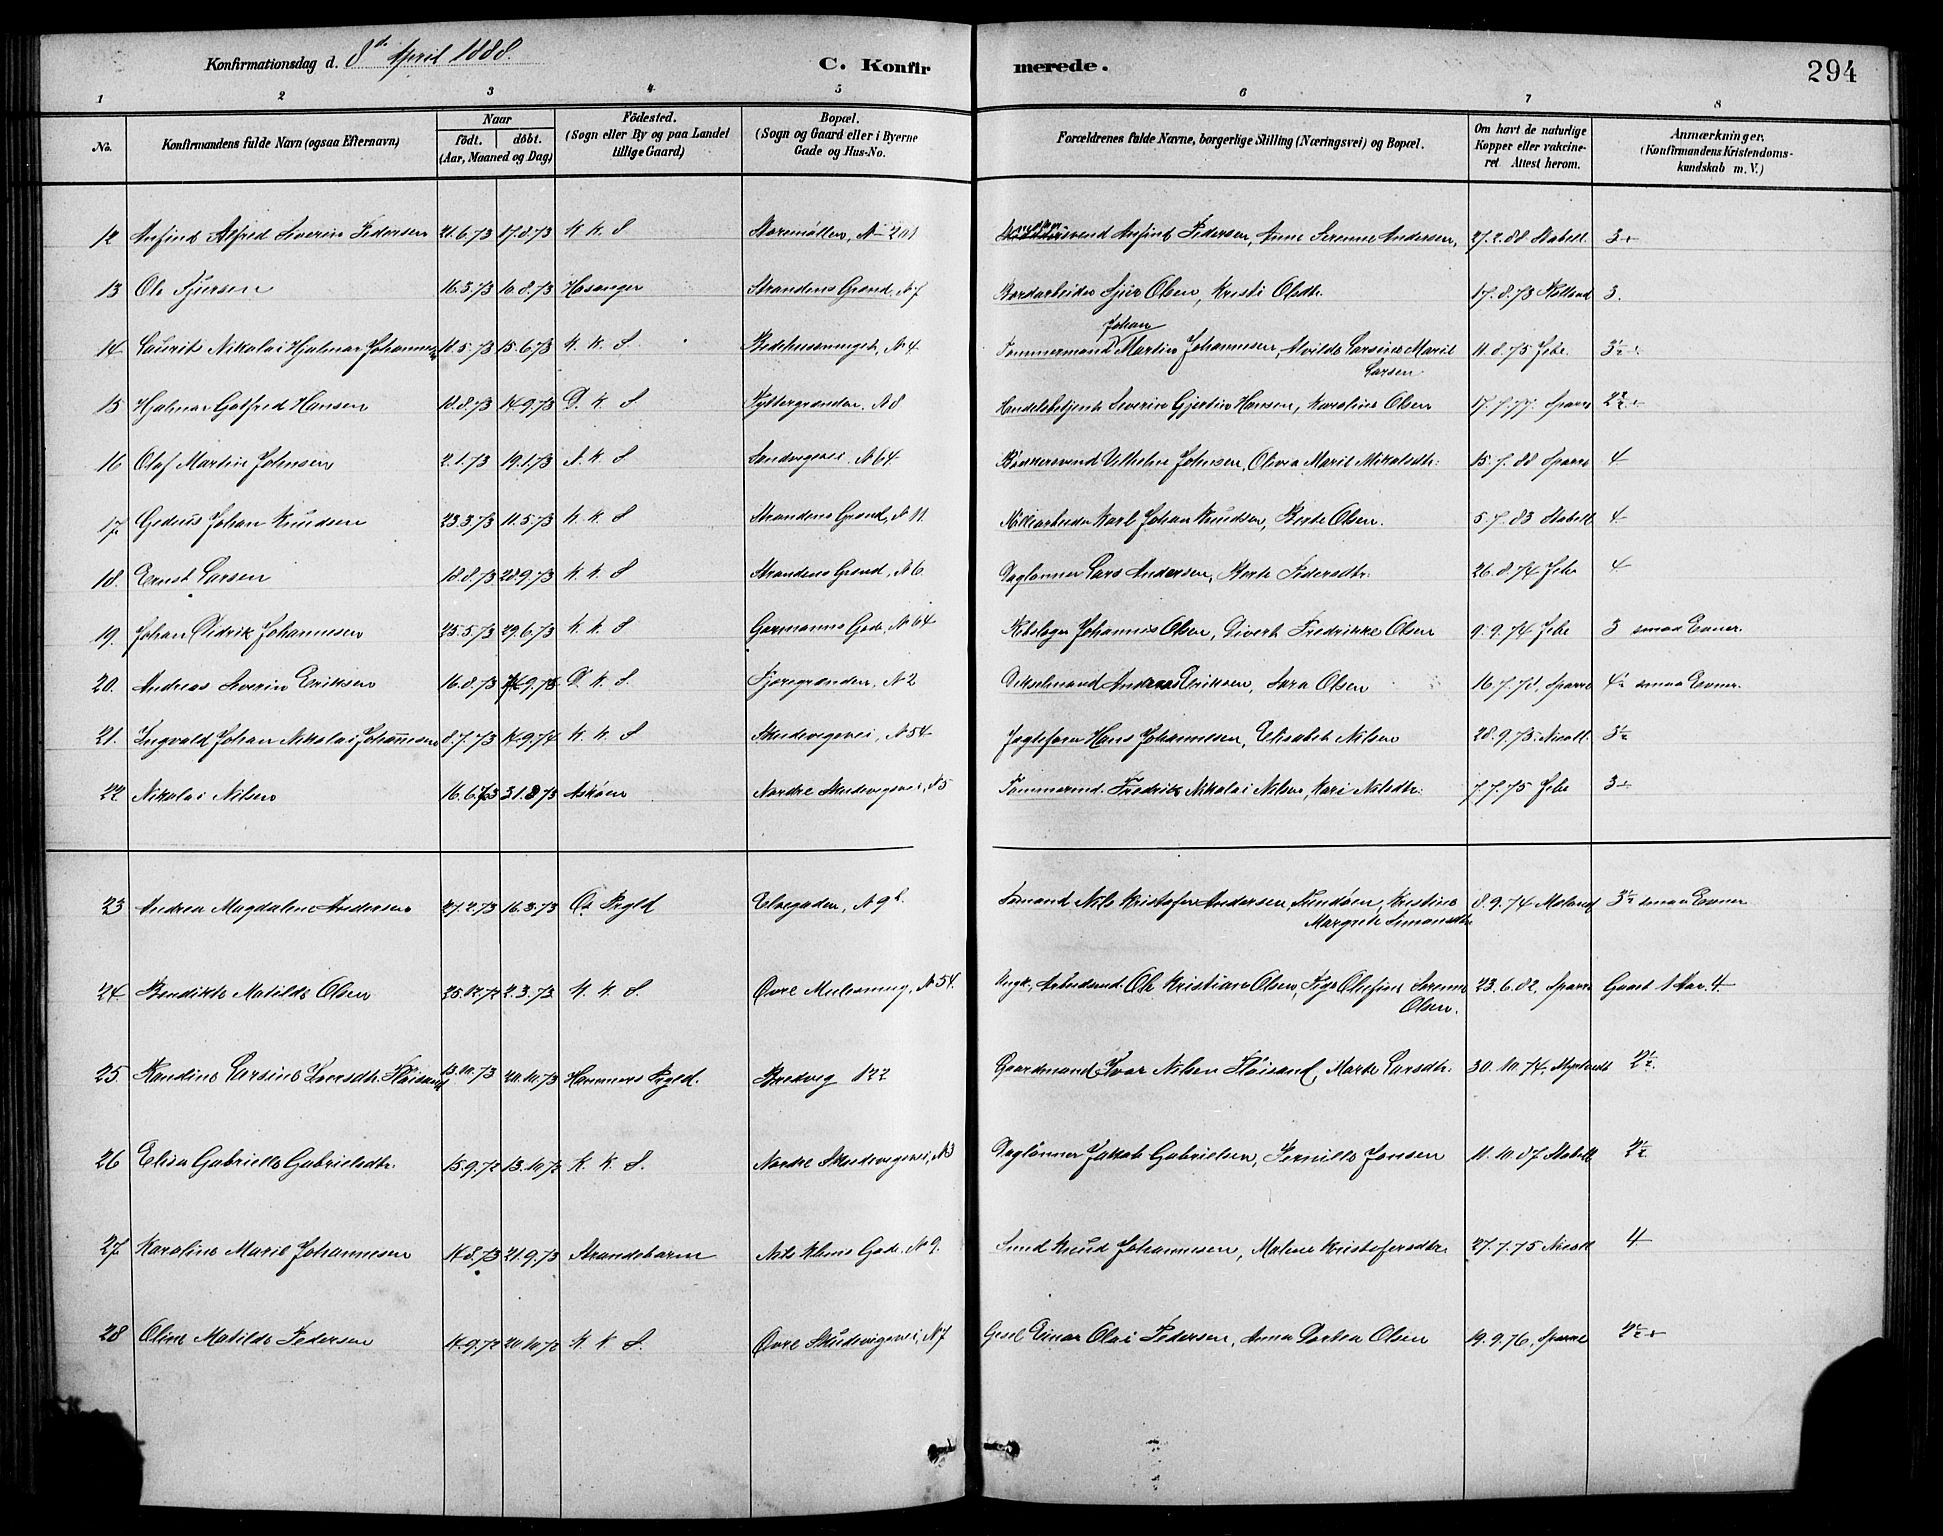 Konfirmationsdag d. 8de April 1888.
C. Konfir merede.
294
1 2 3 4 5 6 7 8
No. Konfirmandens fulde Navn (ogsaa Efternavn) Naar födt. döbt. (Aar, Maaned og Dag) Födested. (Sogn eller By og paa Landet tillige Gaard) Bopæl. (Sogn og Gaard eller i Byerne Gade og Hus-No. Forældrenes fulde Navne, borgerlige Stilling (Næringsvei) og Bopæl. Om havt de naturlige Kopper eller vakcineret Attest herom. Anmærkninger. (Konfirmandens Kristendomskundskab m. V.)
12 Anfind Alfred Severin Pedersen 21.6.73 17.8.73 K. K. S Storemøllen, N 201 Anfind Pedersen, Anne Serenne Andersen, 27.2.88 Stabell 3+
13 Ole Sjursen 16.3.73 10.8.73 Hosanger Strandens Grænd, N 7 Bordarbeider Sjur Olsen, Kristi Olsdtr. 17.8.73 3.
14 Laurits Nikolai Hjalmar Johannesen 11.5.73 15.6.73 K. K. S Bedehussmuget, N 4. Tømmermand Johan Martin Johannesen, Alvilde Larsine Marie Larsen. 11.8.75 Jebe. 3½+
15 Hjalmar Gotfred Hansen 18.8.73 14.9.73 D. K. S Kyttergränden, N 8 Handelsbetjent Severin Gjertin Hansen, Karoline Olsen 17.7.77. Sparre 2½+
16 Olaf Martin Johnsen 2.1.73 19.1.73 N. K. S Sandvigsvei, N 64. Bødkersvend Vilhelm Johnsen, Olivia Marie Mikalsdtr. 15.7.88 Sparre 4
17. Gedeus Johan Knudsen 23.3.73 11.5.73 K. K. S Strandens Grænd, N 11. Karl Johan Knudsen, Berte Olsen. 5.7.83 Stabell 4
18. Ernst Larsen 18.8.73 28.9.73 K. K. S Strandens Grænd, N 6 Daglønner Lars Andersen, Berte Pedersdtr. 26.8.74 Jebe 4
19. Johan Didrik Johannesen 25.5.73 29.6.73 K. K. S Garmanns Gade, N 64 Rebslager Johannes Olsen, Sivert Fredrikke Olsen 9.9.74 Jebe 3 smaa Evner.
20. Andreas Severin Eriksen 16.8.73 14.9.73 D. K. S. Fjæregränden, N 2 Vekselmand Andreas Eriksen, Sara Olsen 16.7.78, Sparre 4½ smaa Evner.
21. Ingvald Johan Nikolai Johannesen 8.7.73 14.9.74 K. K. S Skudevigsvei, N 54 Jagtefører Hans Johannesen, Elisabet Nilsen 28.9.73. Nicoll. 3½
22 Nikolai Nilsen 16.6.73 31.8.73 Askøen Nordre Skudevigsvei, N 5 Tømmermd. Fredrik Nikolai Nilsen, Kari Nilsdtr. 7.7.75 Jebe 3+
23 Andrea Magdalene Andersen 27.2.73 16.3.73 Os Prgld Elvegaden, N 9b. Nils Kristofer Andersen, Kristine Margrete Simonsdtr 8.9.74 Moland 3½ smaa Evner
24 Bendikte Matilde Olsen 25.12.72 2.3.73. K. K. S. Øvre Mulesmug, N 54. Ungk., Arbeidsmd. Ole Kristian Olsen, Pige Olufine Serenne Olsen. 23.6.82, Sparre Gaaet 1 Aar. 4
25. Kandine Larsine Iversdtr. Fløisand 13.10.73 20.10.73 Hammers Prgld. Bredvig 122 Gaardmand Ivar Nilsen Fløisand, Marte Larsdtr. 30.10.74, 2½.
26 Elisa Gabrielle Gabrielsdtr. 15.9.72 13.10.72 K. K. S. Nordre Skudevigsvei, N 3 Daglønner Jakob Gabrielsen, Pernille Jonsen 11.10.87 Stabell 2½
27 Karoline Marie Johannesen 14.8.73 21.9.73 Strandebarm Nils Klims Gade, N 9. Smed Knud Johannesen, Malene Kristofersdtr. 27.7.75 Nicoll 4
28 Oline Matilde Pedersen 14.9.72 20.10.72 K. K. S. Øvre Skudevigsvei, N 7 Gesel Einar Olai Pedersen, Anna Dortea Olsen 19.9.76, Sparre 2½+